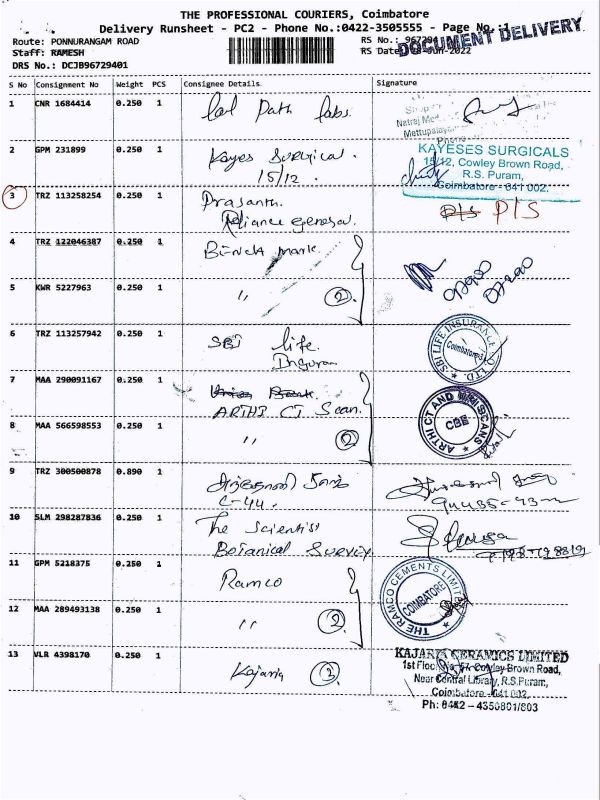 THE PROFESSIONAL COURIERS, Coimbatore
Delivery Runsheet - PC2 - Phone No.:0422-3505555 - Page No.:1
Route: PONNURANGAM ROAD
Staff: RAMESH
DRS No.: DCJB96729401
RS No.:
RS Date: Jun-2022
DOCUMENT DELIVERY
S No Consignment No Weight PCS Consignee Details Signature
1 CNR 1684414 0.250 1 Path labs
2 GPM 231899 0.250 1 Kayes Surgical.
15/12.
KAYESES SURGICALS
15/12, Cowley Brown Road,
R.S. Puram,
Coimbatore - 641 002.
3 TRZ 113258254 0.250 1 Prasanth. P/S
Reliance general
4 TRZ 122046387 0.250 1 Bench mark
5 KWR 5227963 0.250 1 ,, 2
6 TRZ 113257942 0.250 1 SBI life
SBI LIFE INSURANCE CO LTD.
Coimbatore
7 MAA 290091167 0.250 1 Union Bank.
ARTHI CT Scan.
ARTHI CT AND MRI SCANS
CBE
8 MAA 566598553 0.250 1 ,, 2
9 TRZ 300500878 0.890 1
C-44.
10 SLM 298287836 0.250 1 The Scientist
Botanical Survey
11 GPM 5218375 0.250 1 Ramco
THE RAMCO CEMENTS LIMITED
COIMBATORE
12 MAA 289493138 0.250 1 ,, 2
13 VLR 4398170 0.250 1 Kajaria
KAJARIA CERAMICS LIMITED
1st Floor, Cowley Brown Road,
Near Central Library, R.S.Puram,
Coimbatore - 641 002.
Ph: 0422 - 4350801/803